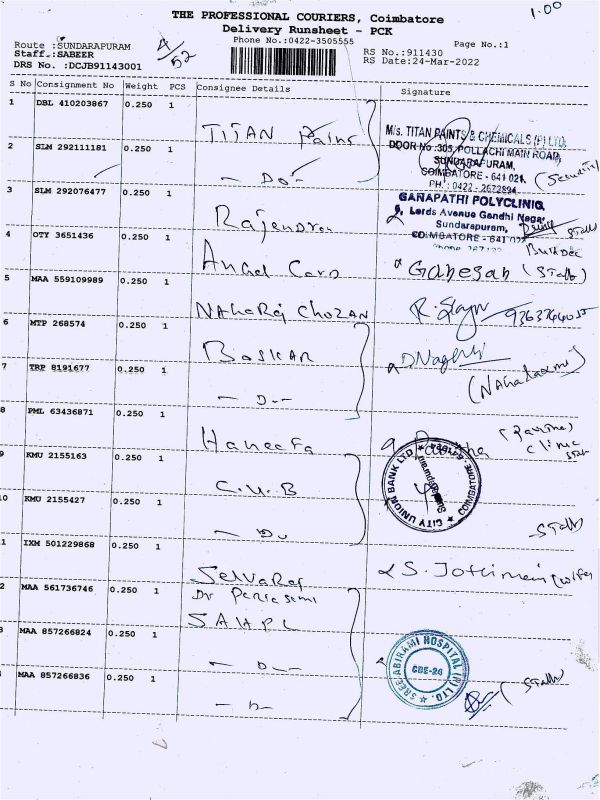 1.00
THE PROFESSIONAL COURIERS, Coimbatore
Delivery Runsheet - PCK
Phone No.:0422-3505555
Page No.:1
Route :SUNDARAPURAM
Staff.:SABEER
DRS No. :DCJB91143001
4/52
RS No.:911430
RS Date:24-Mar-2022
S No Consignment No Weight PCS Consignee Details Signature
1 DBL 410203867 0.250 1 TITAN Paint
M/s. TITAN PAINTS & CHEMICALS (P) LTD.
DOOR No :305, POLLACHI MAIN ROAD,
SUNDARAPURAM,
COIMBATORE - 641 024.
PH.: 0422 - 2672894
(Security)
2 SLM 292111181 0.250 1 - Do -
3 SLM 292076477 0.250 1 Rajendran
GANAPATHI POLYCLINIC,
Lords Avenue Gandhi Nagar
Sundarapuram,
COIMBATORE - 641 024
Staff
4 OTY 3651436 0.250 1 Angel Card
Ganesan (Staff)
5 MAA 559109989 0.250 1 NAHARAJ CHOZAN
6 MTP 268574 0.250 1 BASKAR
7 TRP 8191677 0.250 1 - Do -
8 PML 63436871 0.250 1 Haneefa
clinic
9 KMU 2155163 0.250 1 C.U.B
CITY UNION BANK LTD
Sundarapuram
COIMBATORE - 641024
0 KMU 2155427 0.250 1 - Do
Staff
1 IXM 501229868 0.250 1 Selvaraj
S. Jothimani (wife)
2 MAA 561736746 0.250 1 Dr Periasami
SAHPL
3 MAA 857266824 0.250 1 - D -
SREE ABIRAMI HOSPITAL (P) LTD.
CBE-24
MAA 857266836 0.250 1 - D -
(Staff)